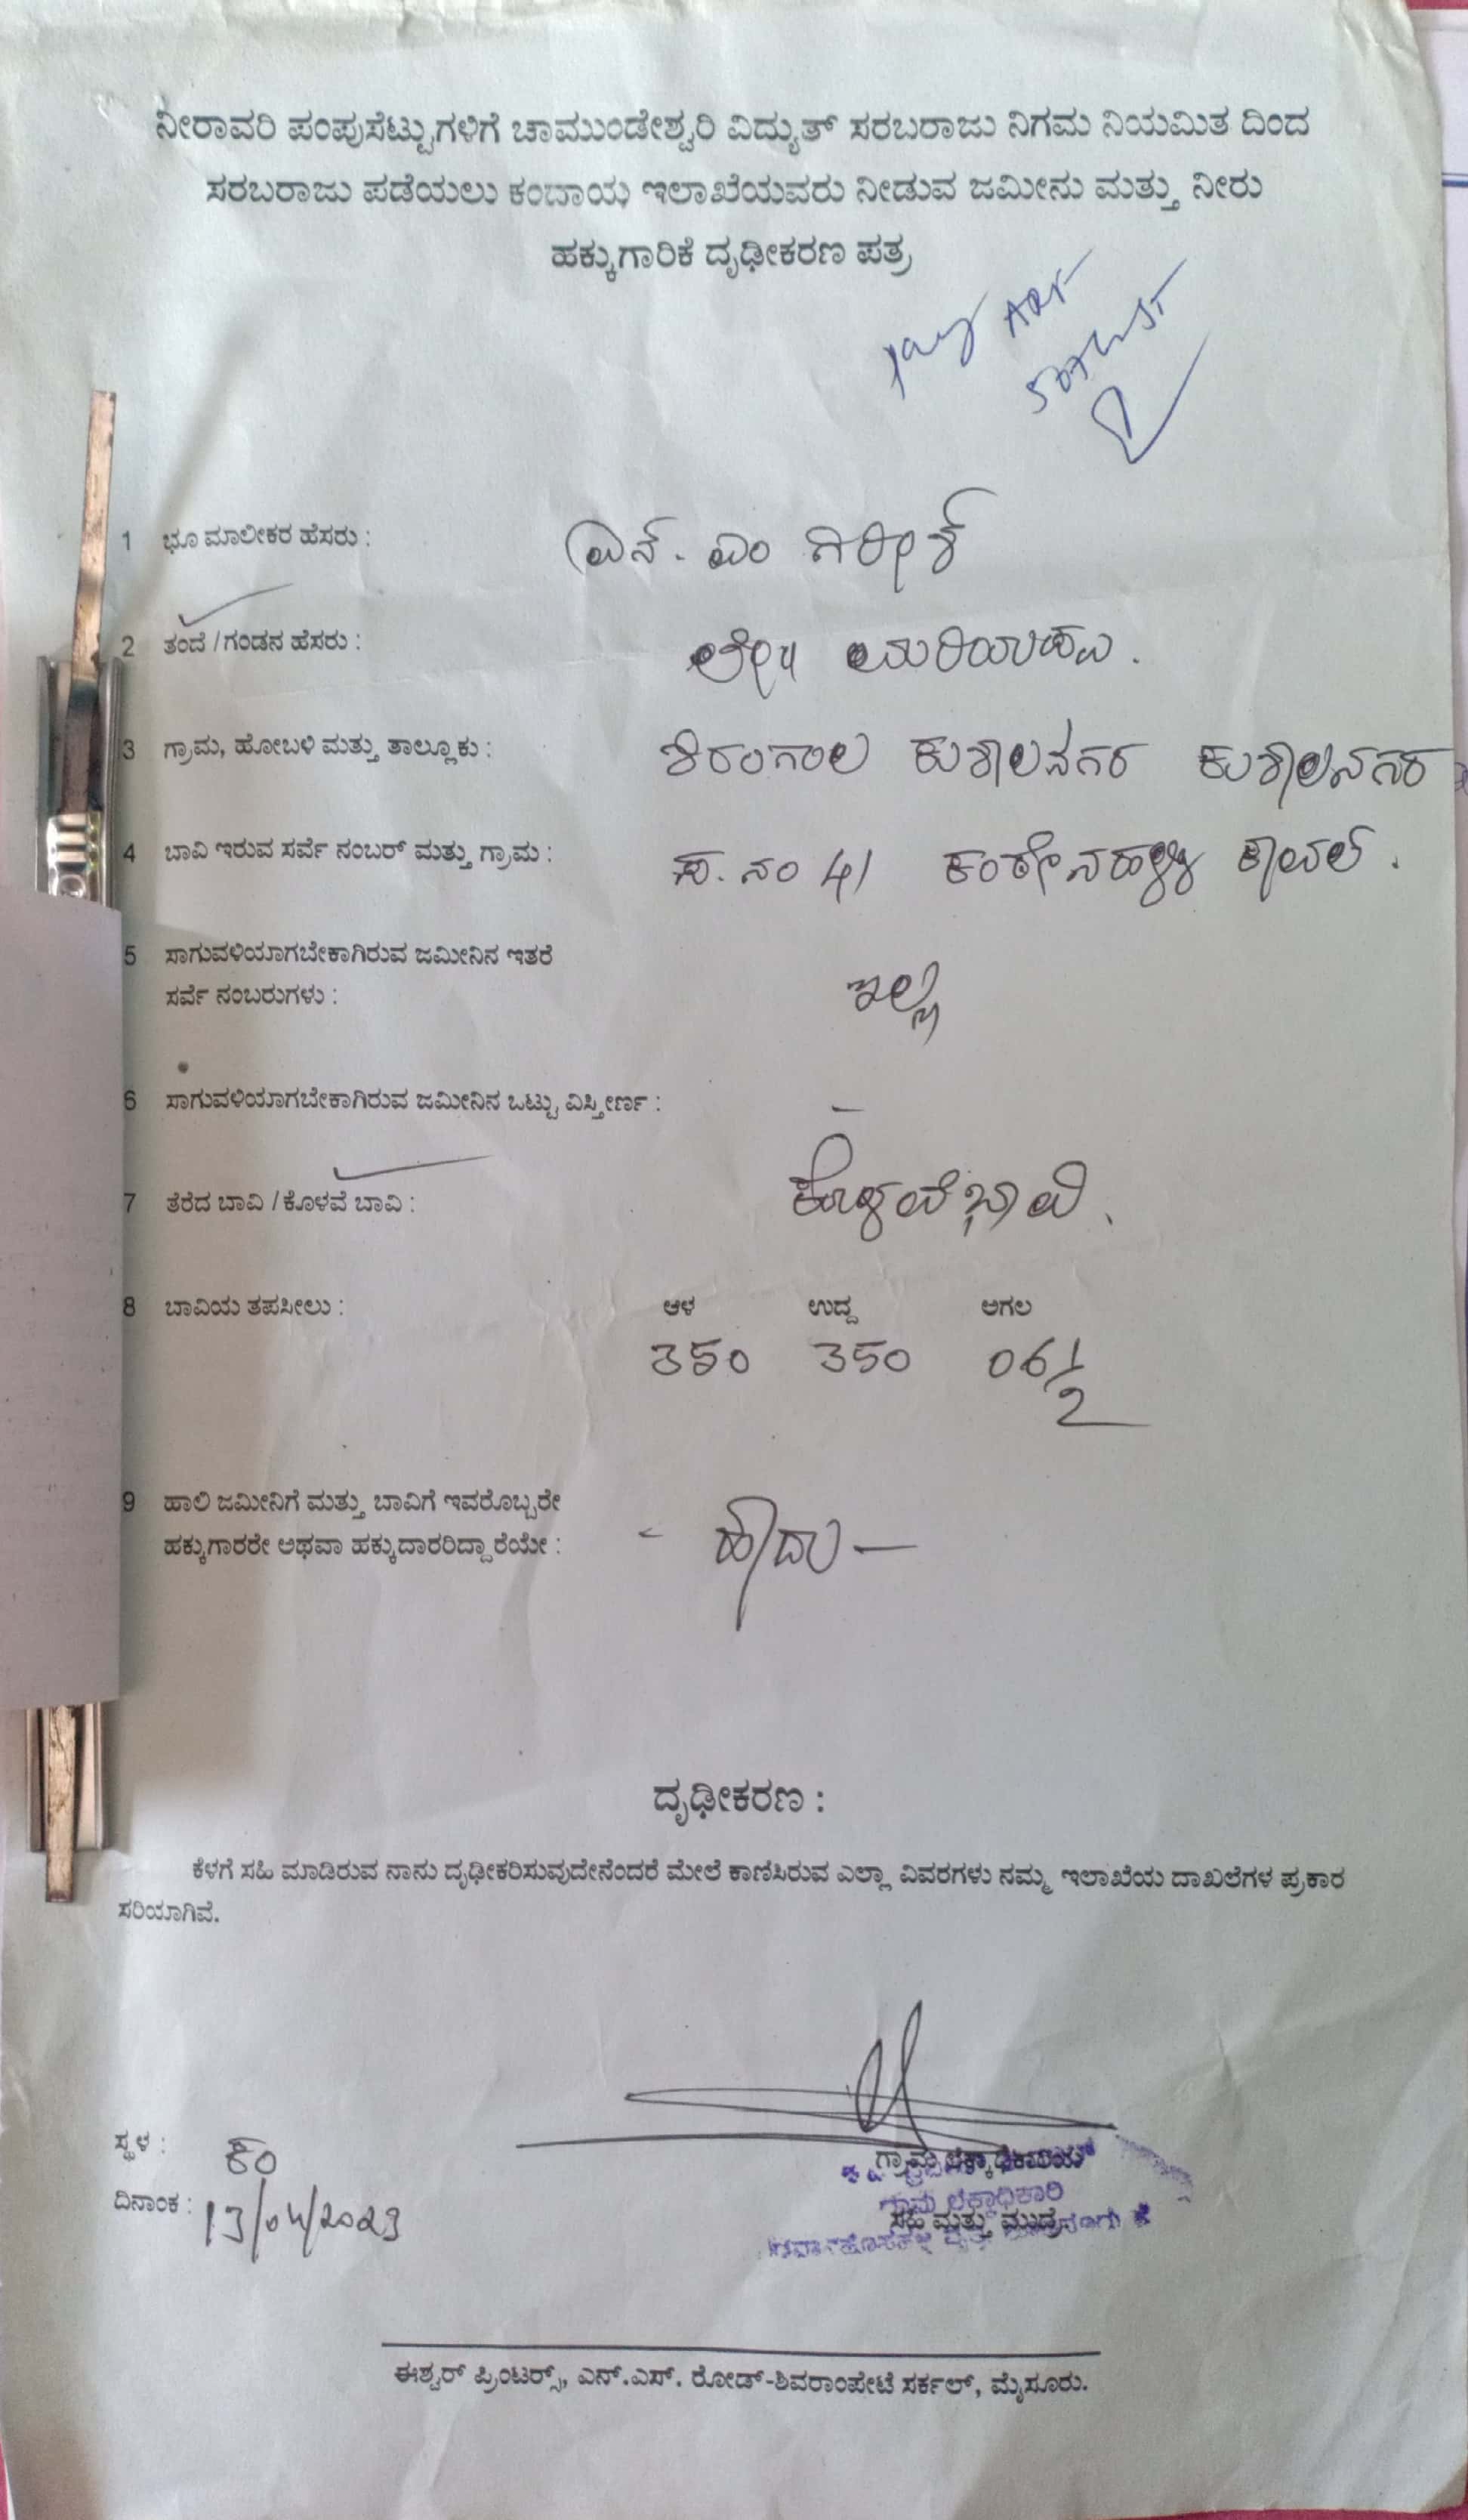 ನೀರಾವರಿ ಪಂಪುಸೆಟ್ಟುಗಳಿಗೆ ಚಾಮುಂಡೇಶ್ವರಿ ವಿದ್ಯುತ್ ಸರಬರಾಜು ನಿಗಮ ನಿಯಮಿತ ದಿಂದ
ಸರಬರಾಜು ಪಡೆಯಲು ಕಂದಾಯ ಇಲಾಖೆಯವರು ನೀಡುವ ಜಮೀನು ಮತ್ತು ನೀರು
ಹಕ್ಕುಗಾರಿಕೆ ದೃಢೀಕರಣ ಪತ್ರ
1 ಭೂ ಮಾಲೀಕರ ಹೆಸರು : ಎನ್. ಎಂ ಗಿರೀಶ್
2 ತಂದೆ / ಗಂಡನ ಹೆಸರು :
3 ಗ್ರಾಮ, ಹೋಬಳಿ ಮತ್ತು ತಾಲ್ಲೂಕು : ಶಿರಂಗಾಲ ಕುಶಾಲನಗರ ಕುಶಾಲನಗರ
4 ಬಾವಿ ಇರುವ ಸರ್ವೆ ನಂಬರ್ ಮತ್ತು ಗ್ರಾಮ : ಸ. ನಂ 41 ಕಾವಲ್ .
5 ಸಾಗುವಳಿಯಾಗಬೇಕಾಗಿರುವ ಜಮೀನಿನ ಇತರೆ
ಸರ್ವೆ ನಂಬರುಗಳು : ಇಲ್ಲ
6 ಸಾಗುವಳಿಯಾಗಬೇಕಾಗಿರುವ ಜಮೀನಿನ ಒಟ್ಟು ವಿಸ್ತೀರ್ಣ : –
7 ತೆರೆದ ಬಾವಿ / ಕೊಳವೆ ಬಾವಿ : ಕೊಳವೆ ಬಾವಿ .
8 ಬಾವಿಯ ತಪಸೀಲು : ಆಳ ಉದ್ದ ಅಗಲ
350 350 06 1/2
9 ಹಾಲಿ ಜಮೀನಿಗೆ ಮತ್ತು ಬಾವಿಗೆ ಇವರೊಬ್ಬರೇ
ಹಕ್ಕುಗಾರರೇ ಅಥವಾ ಹಕ್ಕುದಾರರಿದ್ದಾರೆಯೇ : - ಹೌದು —
ದೃಢೀಕರಣ :
ಕೆಳಗೆ ಸಹಿ ಮಾಡಿರುವ ನಾನು ದೃಢೀಕರಿಸುವುದೇನೆಂದರೆ ಮೇಲೆ ಕಾಣಿಸಿರುವ ಎಲ್ಲಾ ವಿವರಗಳು ನಮ್ಮ ಇಲಾಖೆಯ ದಾಖಲೆಗಳ ಪ್ರಕಾರ
ಸರಿಯಾಗಿವೆ.
ಸ್ಥಳ :
ಗ್ರಾಮ ಲೆಕ್ಕಾಧಿಕಾರಿಯ
ಗ್ರಾಮ ಲೆಕ್ಕಾಧಿಕಾರಿ
ದಿನಾಂಕ : 13/04/2023
ಸಹಿ ಮತ್ತು ಮುದ್ರೆ
ಈಶ್ವರ್ ಪ್ರಿಂಟರ್ಸ್, ಎನ್.ಎಸ್. ರೋಡ್-ಶಿವರಾಂಪೇಟೆ ಸರ್ಕಲ್, ಮೈಸೂರು.